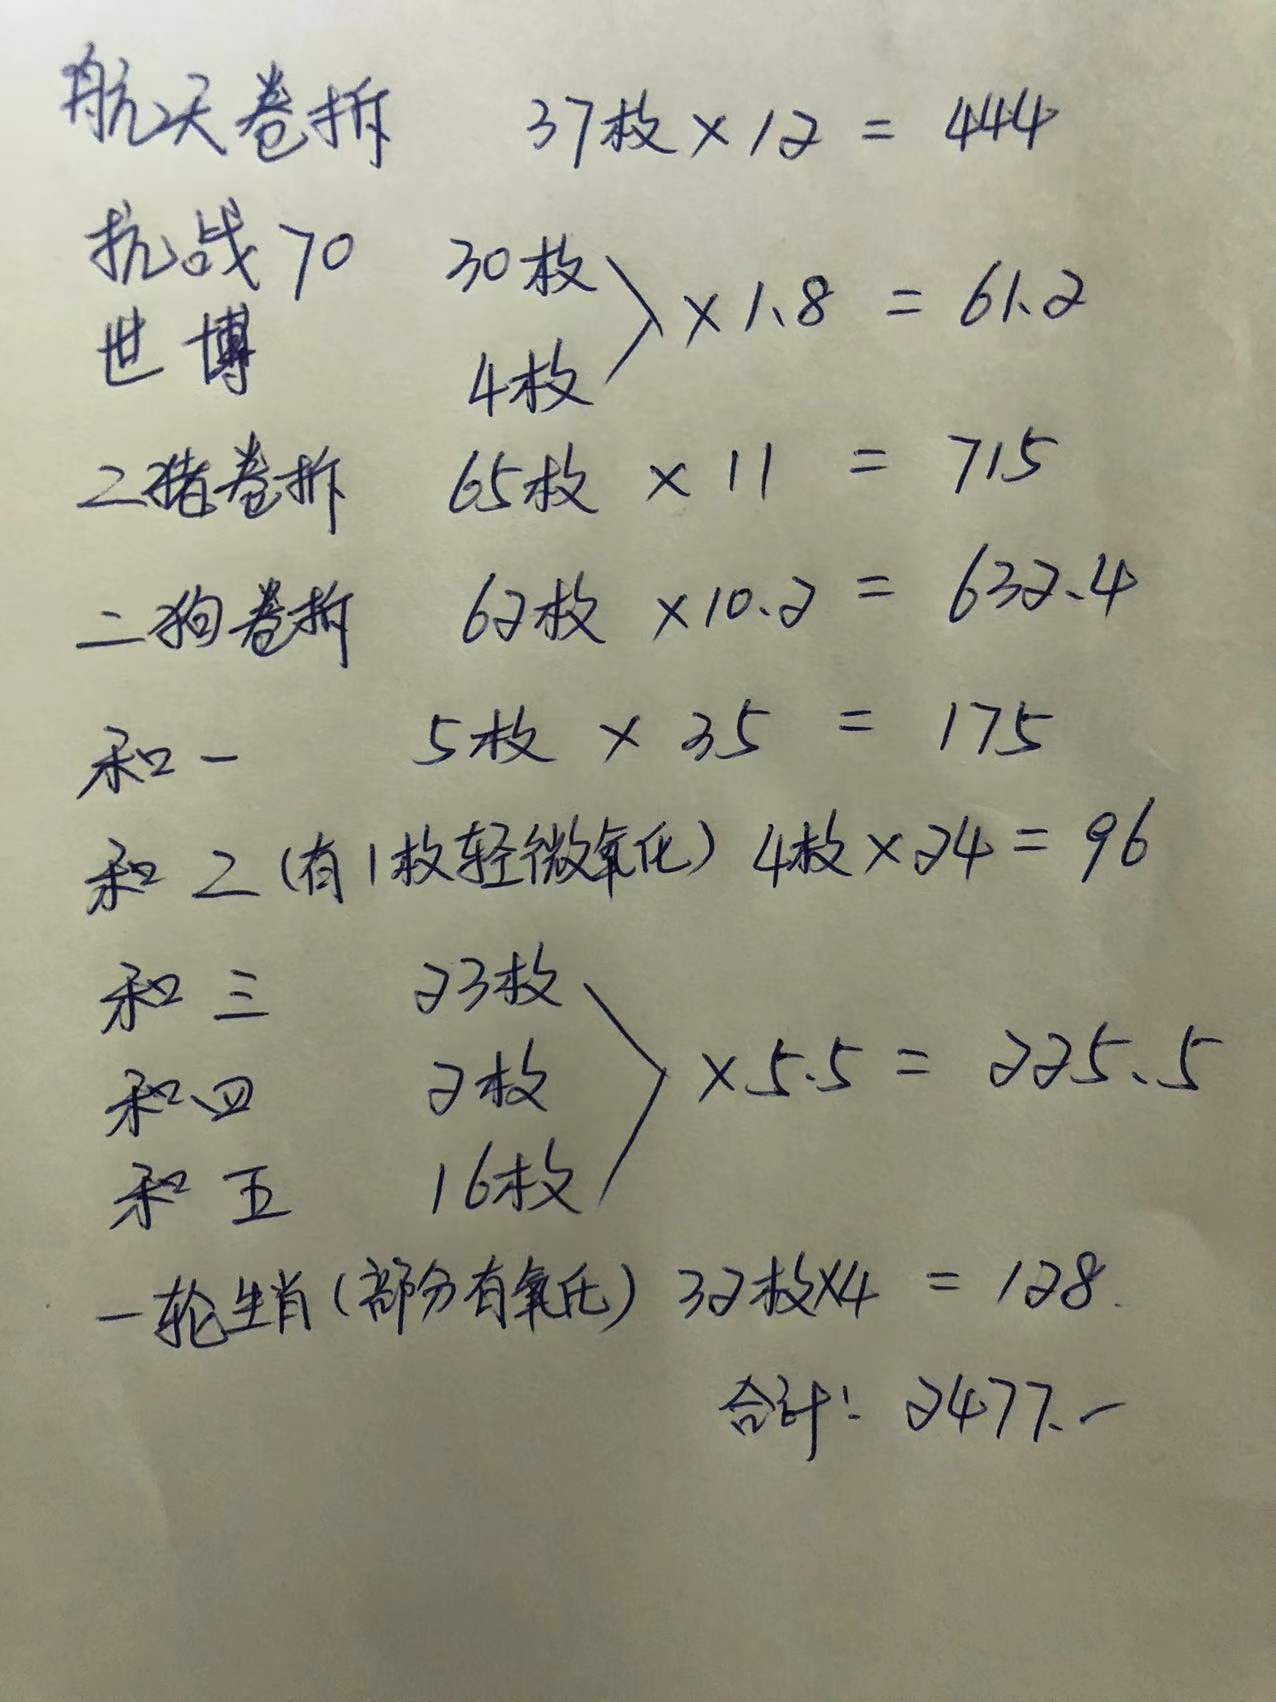 航天卷拆 37枚×12=444
抗战70 30枚
×1.8=61.2
世博 4枚
二猪卷拆 65枚×11=715
二狗卷拆 62枚×10.2=632.4
和一 5枚×35=175
和二(有1枚轻微氧化) 4枚×24=96
和三 23枚
和四 2枚 ×5.5=225.5
和五 16枚
一轮生肖(部分有氧化) 32枚×4=128.
合计: 2477.-